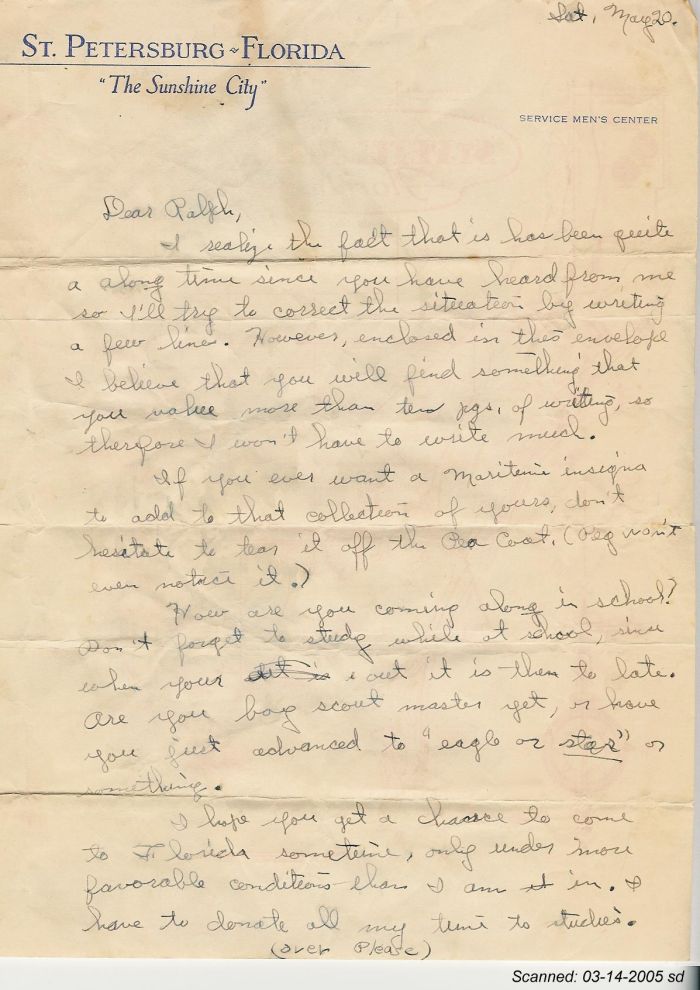 Sat, May 20.
ST. PETERSBURG ~ FLORIDA
"The Sunshine City"
SERVICE MEN'S CENTER
Dear Ralph,
I realize the fact that is has been quite
a along time since you have heard from me
so I'll try to correct the situation by writing
a few line. However, enclosed in this envelope
I believe that you will find something that
you value more than ten pgs. of writing, so
therefore I won't have to write much.
If you ever want a Maritime insigna
to add to that collection of yours, don't
hesitate to tear it off the Pea Coat. (Peg won't
even notice it.)
How are you coming along in school?
Don't forget to study while at school, since
when your out it is then to late.
Are you boy scout master yet, or have
you just advanced to "eagle or star" or
something.
I hope you get a chance to come
to Florida sometime, only under more
favorable conditions than I am in. I
have to donate all my time to studies.
(over Please)
Scanned: 03-14-2005 sd